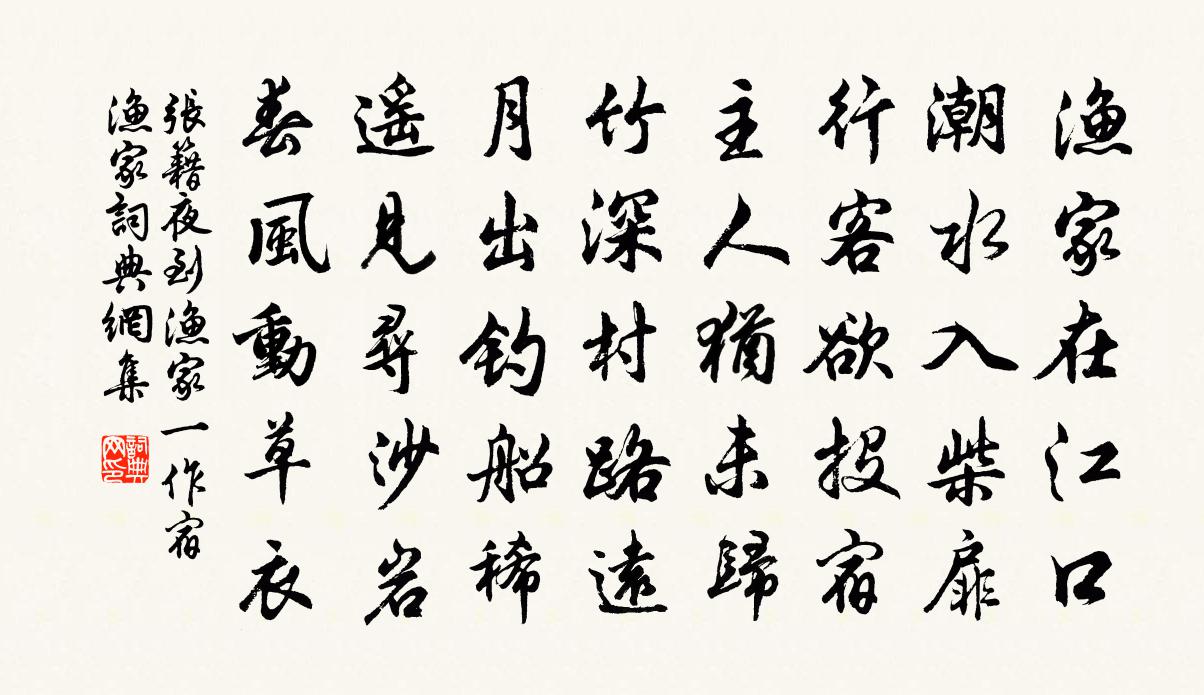 漁家在江口
潮水入柴扉
行客欲投宿
主人猶未歸
竹深村路遠
月出釣船稀
遥見尋沙岩
春風動草衣
張籍夜到漁家一作宿
漁家詞典網集
詞典网印